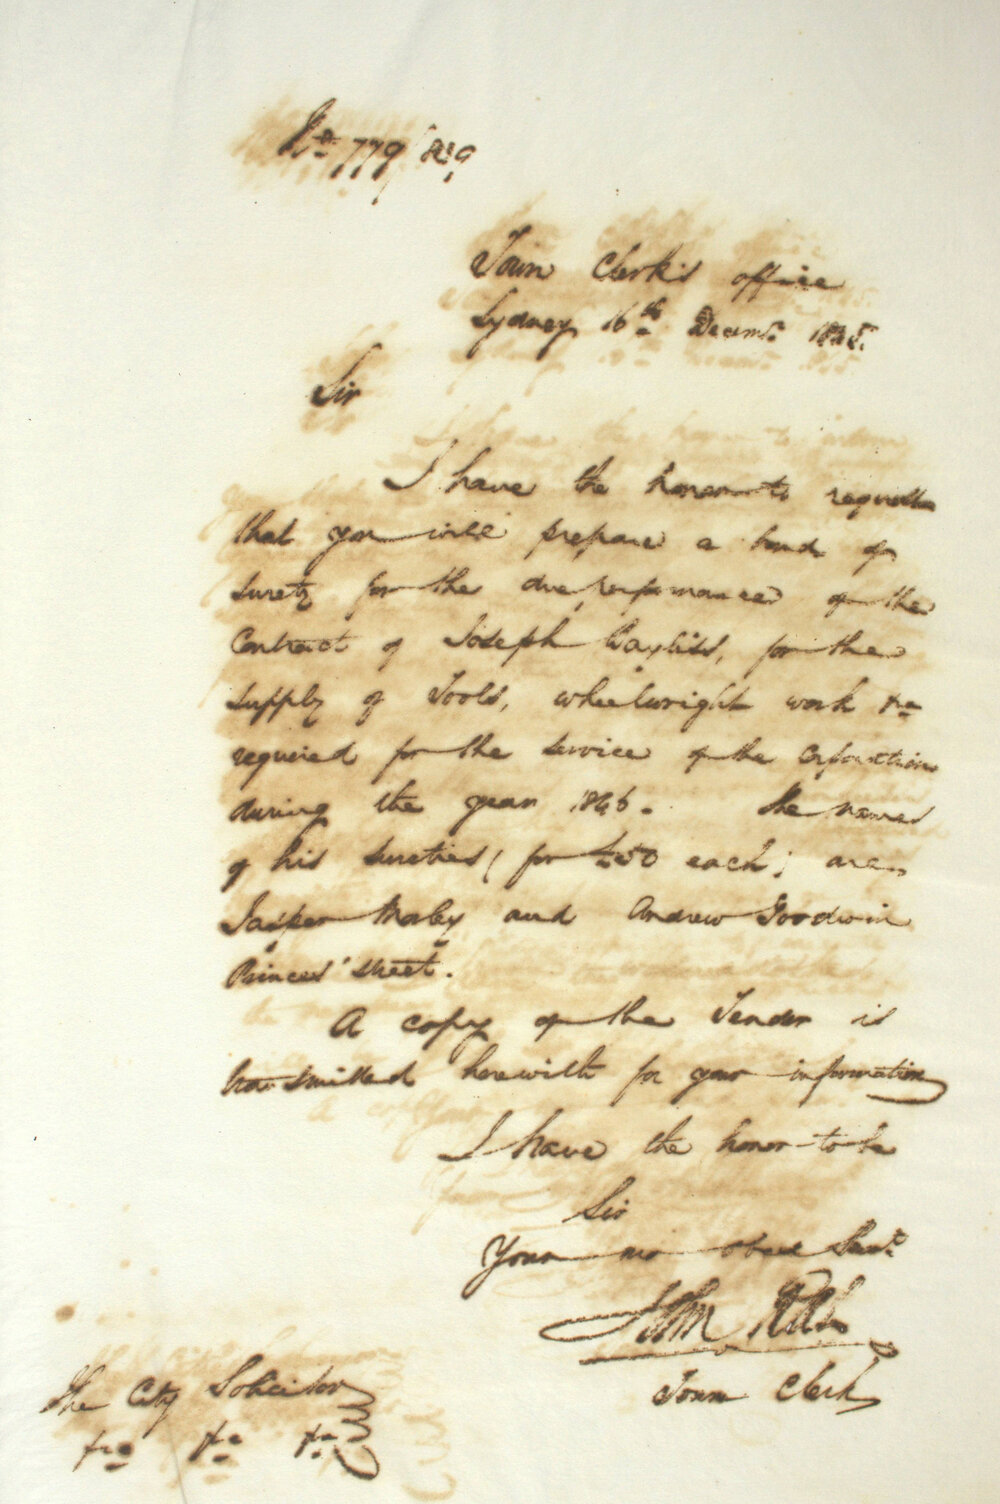 No. 779/819
Town Clerk's office
Sydney 16th Decemr. 1845.
Sir
I have the honor to request
that you will prepare a bond of
surety for the due performance of the
Contract of Joseph Bayliss, for the
supply of Tools, wheelwright work &c
required for the service of the Corporation
during the year 1846. The names
of his sureties (for £50 each) are
Jasper Morley and Andrew Goodwin
Princes' street.
A copy of the Tender is
transmitted herewith for your information
I have the honor to be
Sir
Your mo obed Servt.
John
Town Clerk
The City Solicitor
&c &c &c